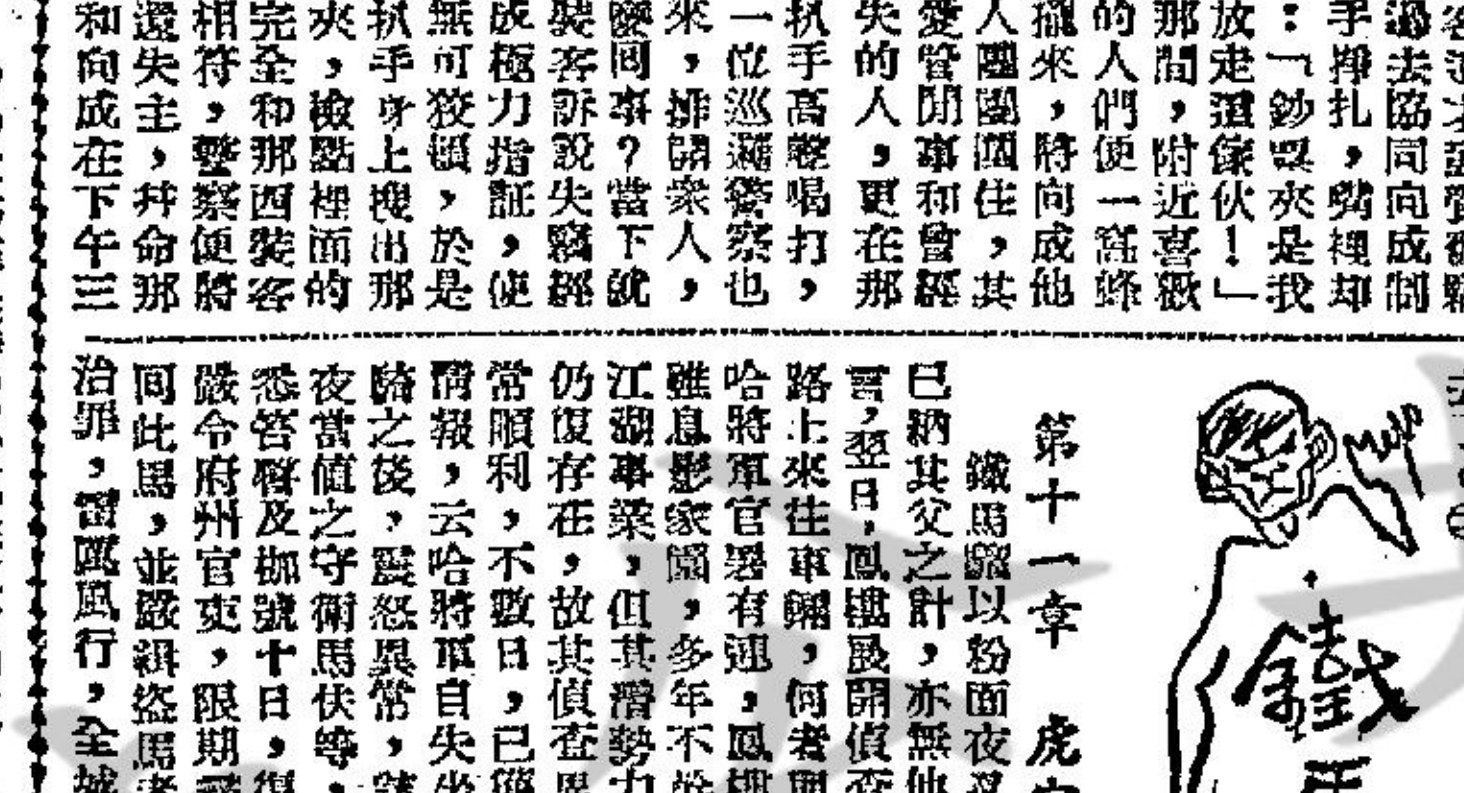 過去協同向成制
手掙扎，嘴裡却
：「鈔票夾是我
放走這傢伙！」
那間，附近喜歡
的人們便一窩蜂
擁來，將向成他
人團團圍住，其
愛管閒事和曾經
失的人，更在那
扒手高聲喝打，
一位巡邏警察也
來，排開衆人，
麼回事？當下就
裝客訴說失竊經
成極力指証，使
無可狡賴，於是
扒手身上搜出那
夾，檢點裡面的
完全和那西裝客
相符，警察便將
還失主，幷命那
和向成在下午三
鐵
第十一章 虎
鐵馬騮以粉面夜叉
已納其父之計，亦無他
言，翌日，鳳樓展開偵查
路上來往車輛，何者與
哈將軍官署有連，鳳樓
雖息影家園，多年不
江湖事業，但其潛勢力
仍復存在，故其偵查
常順利，不數日，已獲
情報，云哈將軍自失坐
騎之後，震怒異常，
夜當値之守衛馬伕等，
悉笞臀及枷號十日，
嚴令府州官吏，限期
回此馬，並嚴緝盜馬者
治罪，雷厲風行，全城